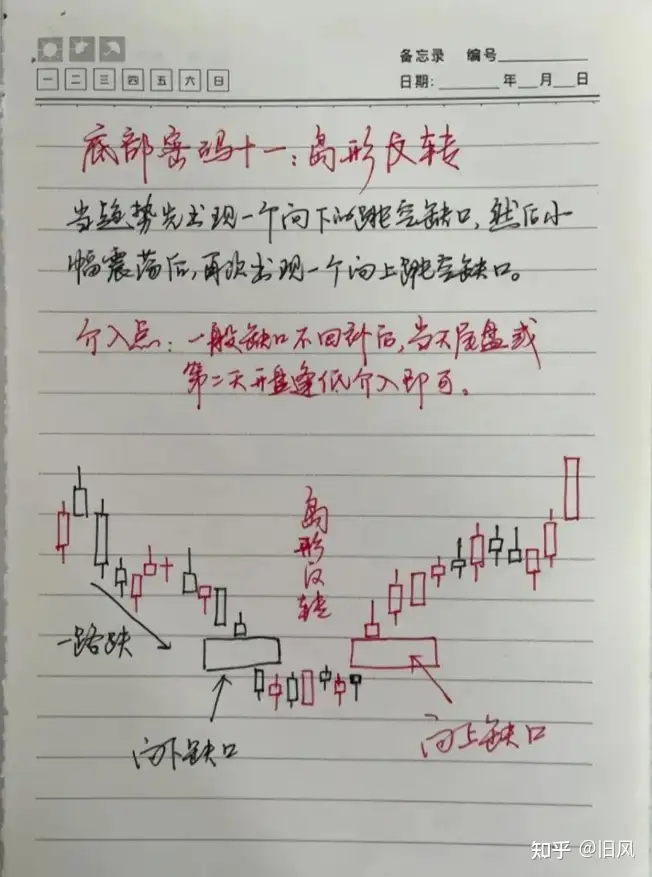 备忘录 编号
一 二 三 四 五 六 日
日期: 年 月 日
底部密码十一:岛形反转
当趋势先出现一个向下的跳空缺口,然后小
幅震荡后,再次出现一个向上跳空缺口。
介入点:一般缺口不回补后,当天尾盘或
第二天开盘逢低介入即可。
岛形反转
一路跌
向下缺口
向上缺口
知乎 @旧风